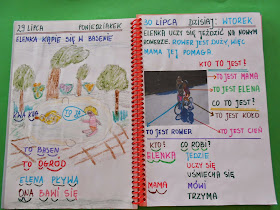 29 LIPCA PONIEDZIAŁEK
ELENKA KĄPIE SIĘ W BASENIE
KWA KWA
TO JE
TO BASEN
TO OGRÓD
ELENA PŁYWA
ONA BAWI SIĘ
30 LIPCA DZISIAJ: WTOREK
ELENKA UCZY SIĘ JEŹDZIĆ NA NOWYM
ROWERZE. ROWER JEST DUŻY, WIĘC
MAMA JEJ POMAGA
KTO TO JEST?
TO JEST MAMA
TO JEST ELENA
CO TO JEST?
TO JEST KOŁO
TO JEST ROWER TO JEST CIEŃ
KTO? CO ROBI?
ELENKA JEDZIE
UCZY SIĘ
UŚMIECHA SIĘ
MAMA MÓWI
TRZYMA